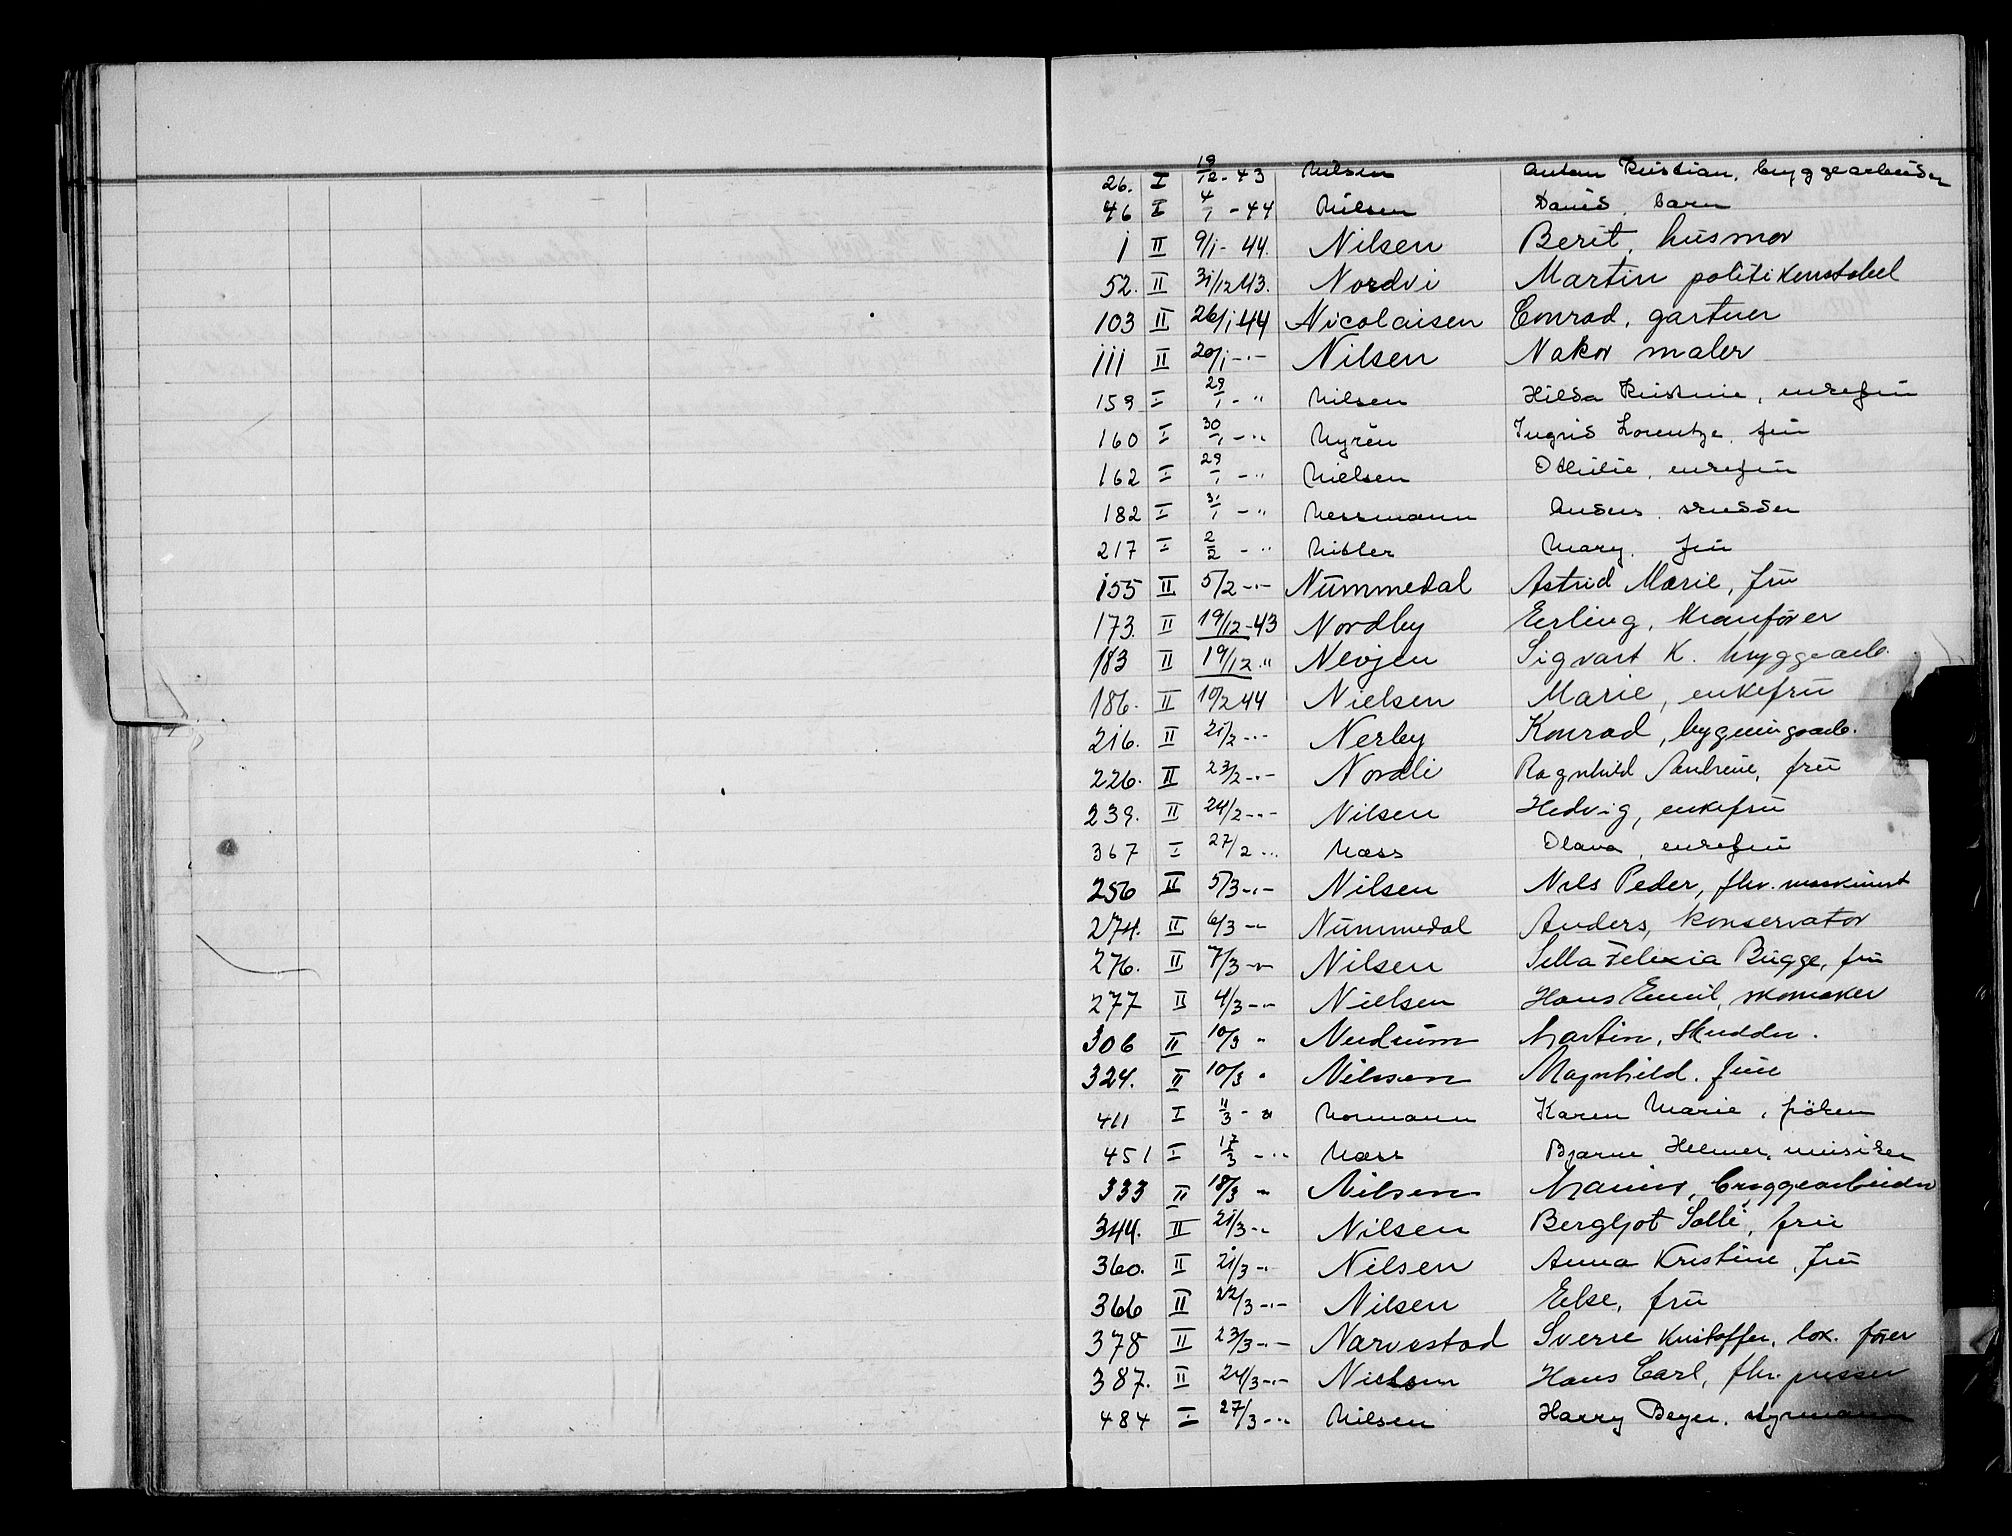 26. I 19/12-43 Nilsen Anton Kristian, bryggearbeider
46 I 4/1-44 Nilsen David, barn
1 II 9/1-44. Nilsen Berit, husmor
52. II 31/12 43. Nordvi Martin politikonstabel
103 II 26/1 44 Nicolaisen Conrad, gartner
111 II 20/1-"- Nilsen Nakor maler
159 I 29/1-" Nilsen Hilda Kristine, enkefru
160 I 30/1-" Nyrén Ingrid Lorentze, fru
162 I 29/1-" Nielsen Othilie, enkefru
182 I 31/1-" Nessmann Anders, skredder
217 I 2/2-" Mary, fru
155 II 5/2-"- Nummedal Astrid Marie, fru
173. II 19/12-43 Nordby Erling, kranfører
183 II 19/12 " Sigvart K. bryggearb.
186. II 10/2 44 Nielsen Marie, enkefru
216. II 21/2-"- Nerby Konrad, bygningsarb.
226. II 23/2-"- Nordli Ragnhild Andrine, fru
239. II 24/2-"- Nilsen Hedvig, enkefru
367 I 27/2-" Næss Olava, enkefru
256 II 5/3-"- Nilsen Nils Peder, fhv. maskinist
274. II 6/3-" Nummedal Anders, konservator
276. II 7/3-"- Nilsen Bugge, fru
277 II 4/3-"- Nielsen Hans Emil, skomaker
306 II 10/3 " Neudrum Martin, skredder.
324. II 10/3 " Nilssen Magnhild, frue
411 I 11/3-" Normann Karen Marie, frøken
451 I 17/3-" Næss Bjarne Helmer, musiker
333 II 18/3 " Nilsen bryggearbeider
344. II 21/3-" Nilsen Bergljot Solli, fru
360. II 21/3-" Nilsen Anna Kristine, fru
366 II 22/3-"- Nilsen Else, fru
378 II 23/3-"- Narvestad Sverre Kristoffer, lok. fører
387. II 24/3-"- Nielsen Hans Carl, fhv. pusser
484 I 27/3-" Nilsen Harry Beyer, styrmann